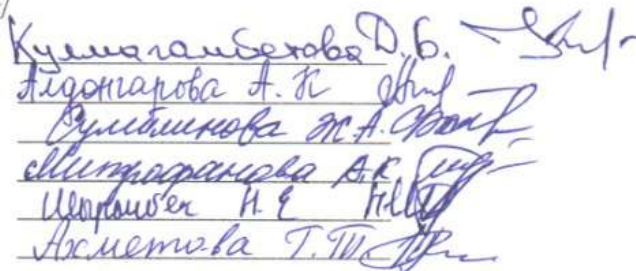 Кулмагамбетова Д.Б.
Алдонгарова А. К
Сулейменова Ж.А.
Митрофанова А.К.
Шарымбек Н. Е
Ахметова Г.Т